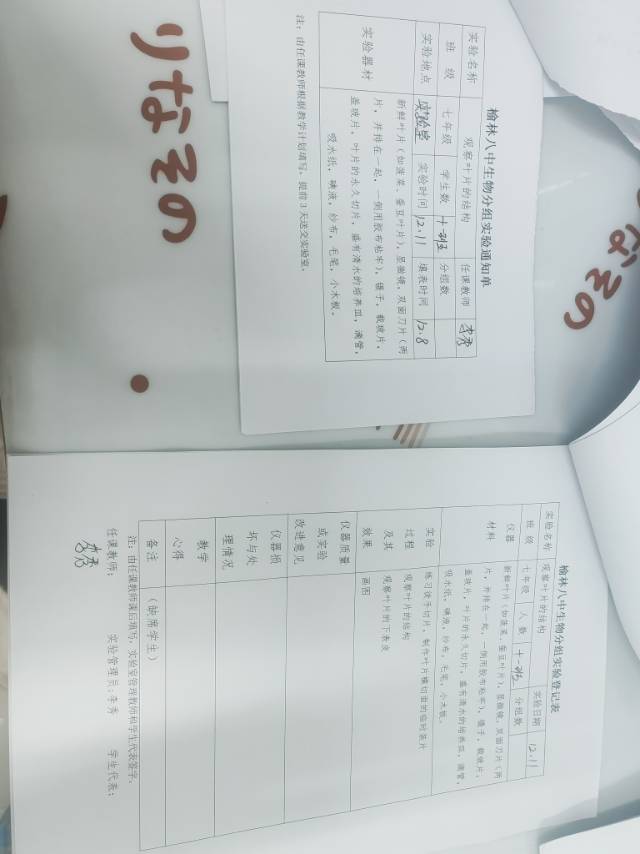 榆林八中生物分组实验通知单
实验名称 观察叶片的结构 任课教师 李秀
班 级 七年级 学生数 十一班 分组数
实验地点 实验室 实验时间 12.11 填表时间 12.8
实验器材
新鲜叶片（如菠菜、蚕豆叶片），显微镜，双面刀片（两
片，并排在一起，一侧用胶布粘牢），镊子，载玻片，
盖玻片，叶片的永久切片，盛有清水的培养皿，滴管，
吸水纸，碘液，纱布，毛笔，小木板。
注：由任课教师根据教学计划填写，提前3天送交实验室。
榆林八中生物分组实验登记表
实验名称 观察叶片的结构 实验日期 12.11
班 级 七年级 人 数 十一班 分组数
仪器
材料
新鲜叶片（如菠菜、蚕豆叶片），显微镜，双面刀片（两
片，并排在一起，一侧用胶布粘牢），镊子，载玻片，
盖玻片，叶片的永久切片，盛有清水的培养皿，滴管，
吸水纸，碘液，纱布，毛笔，小木板。
实验
过程
及其
效果
练习徒手切片，制作叶片横切面的临时装片
观察叶片的结构
观察叶片的下表皮
画图
仪器质量
或实验
改进意见
仪器损
坏与处
理情况
教学
心得
备注 （缺席学生）
注：由任课教师课后填写，实验室管理教师和学生代表签字。
任课教师： 李秀 实验管理员：李秀 学生代表：
りなその